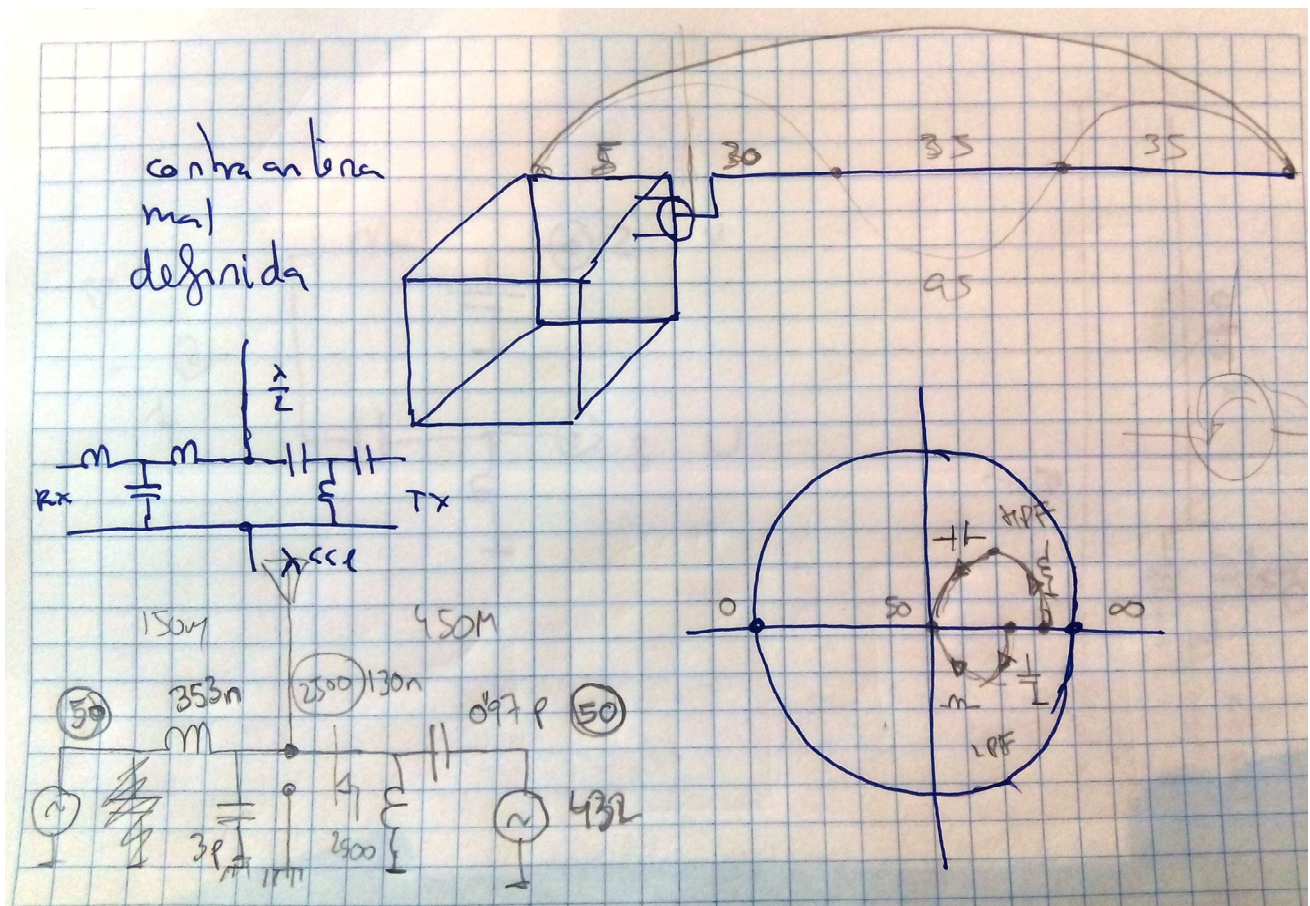 contra antena
mal
definida
5 30 35 35
95
λ/2
RX TX
λ<<l
150M 450M
50 353n 2500 130n 0'97p 50
3p 2500 432
HPF
0 50 ∞
LPF